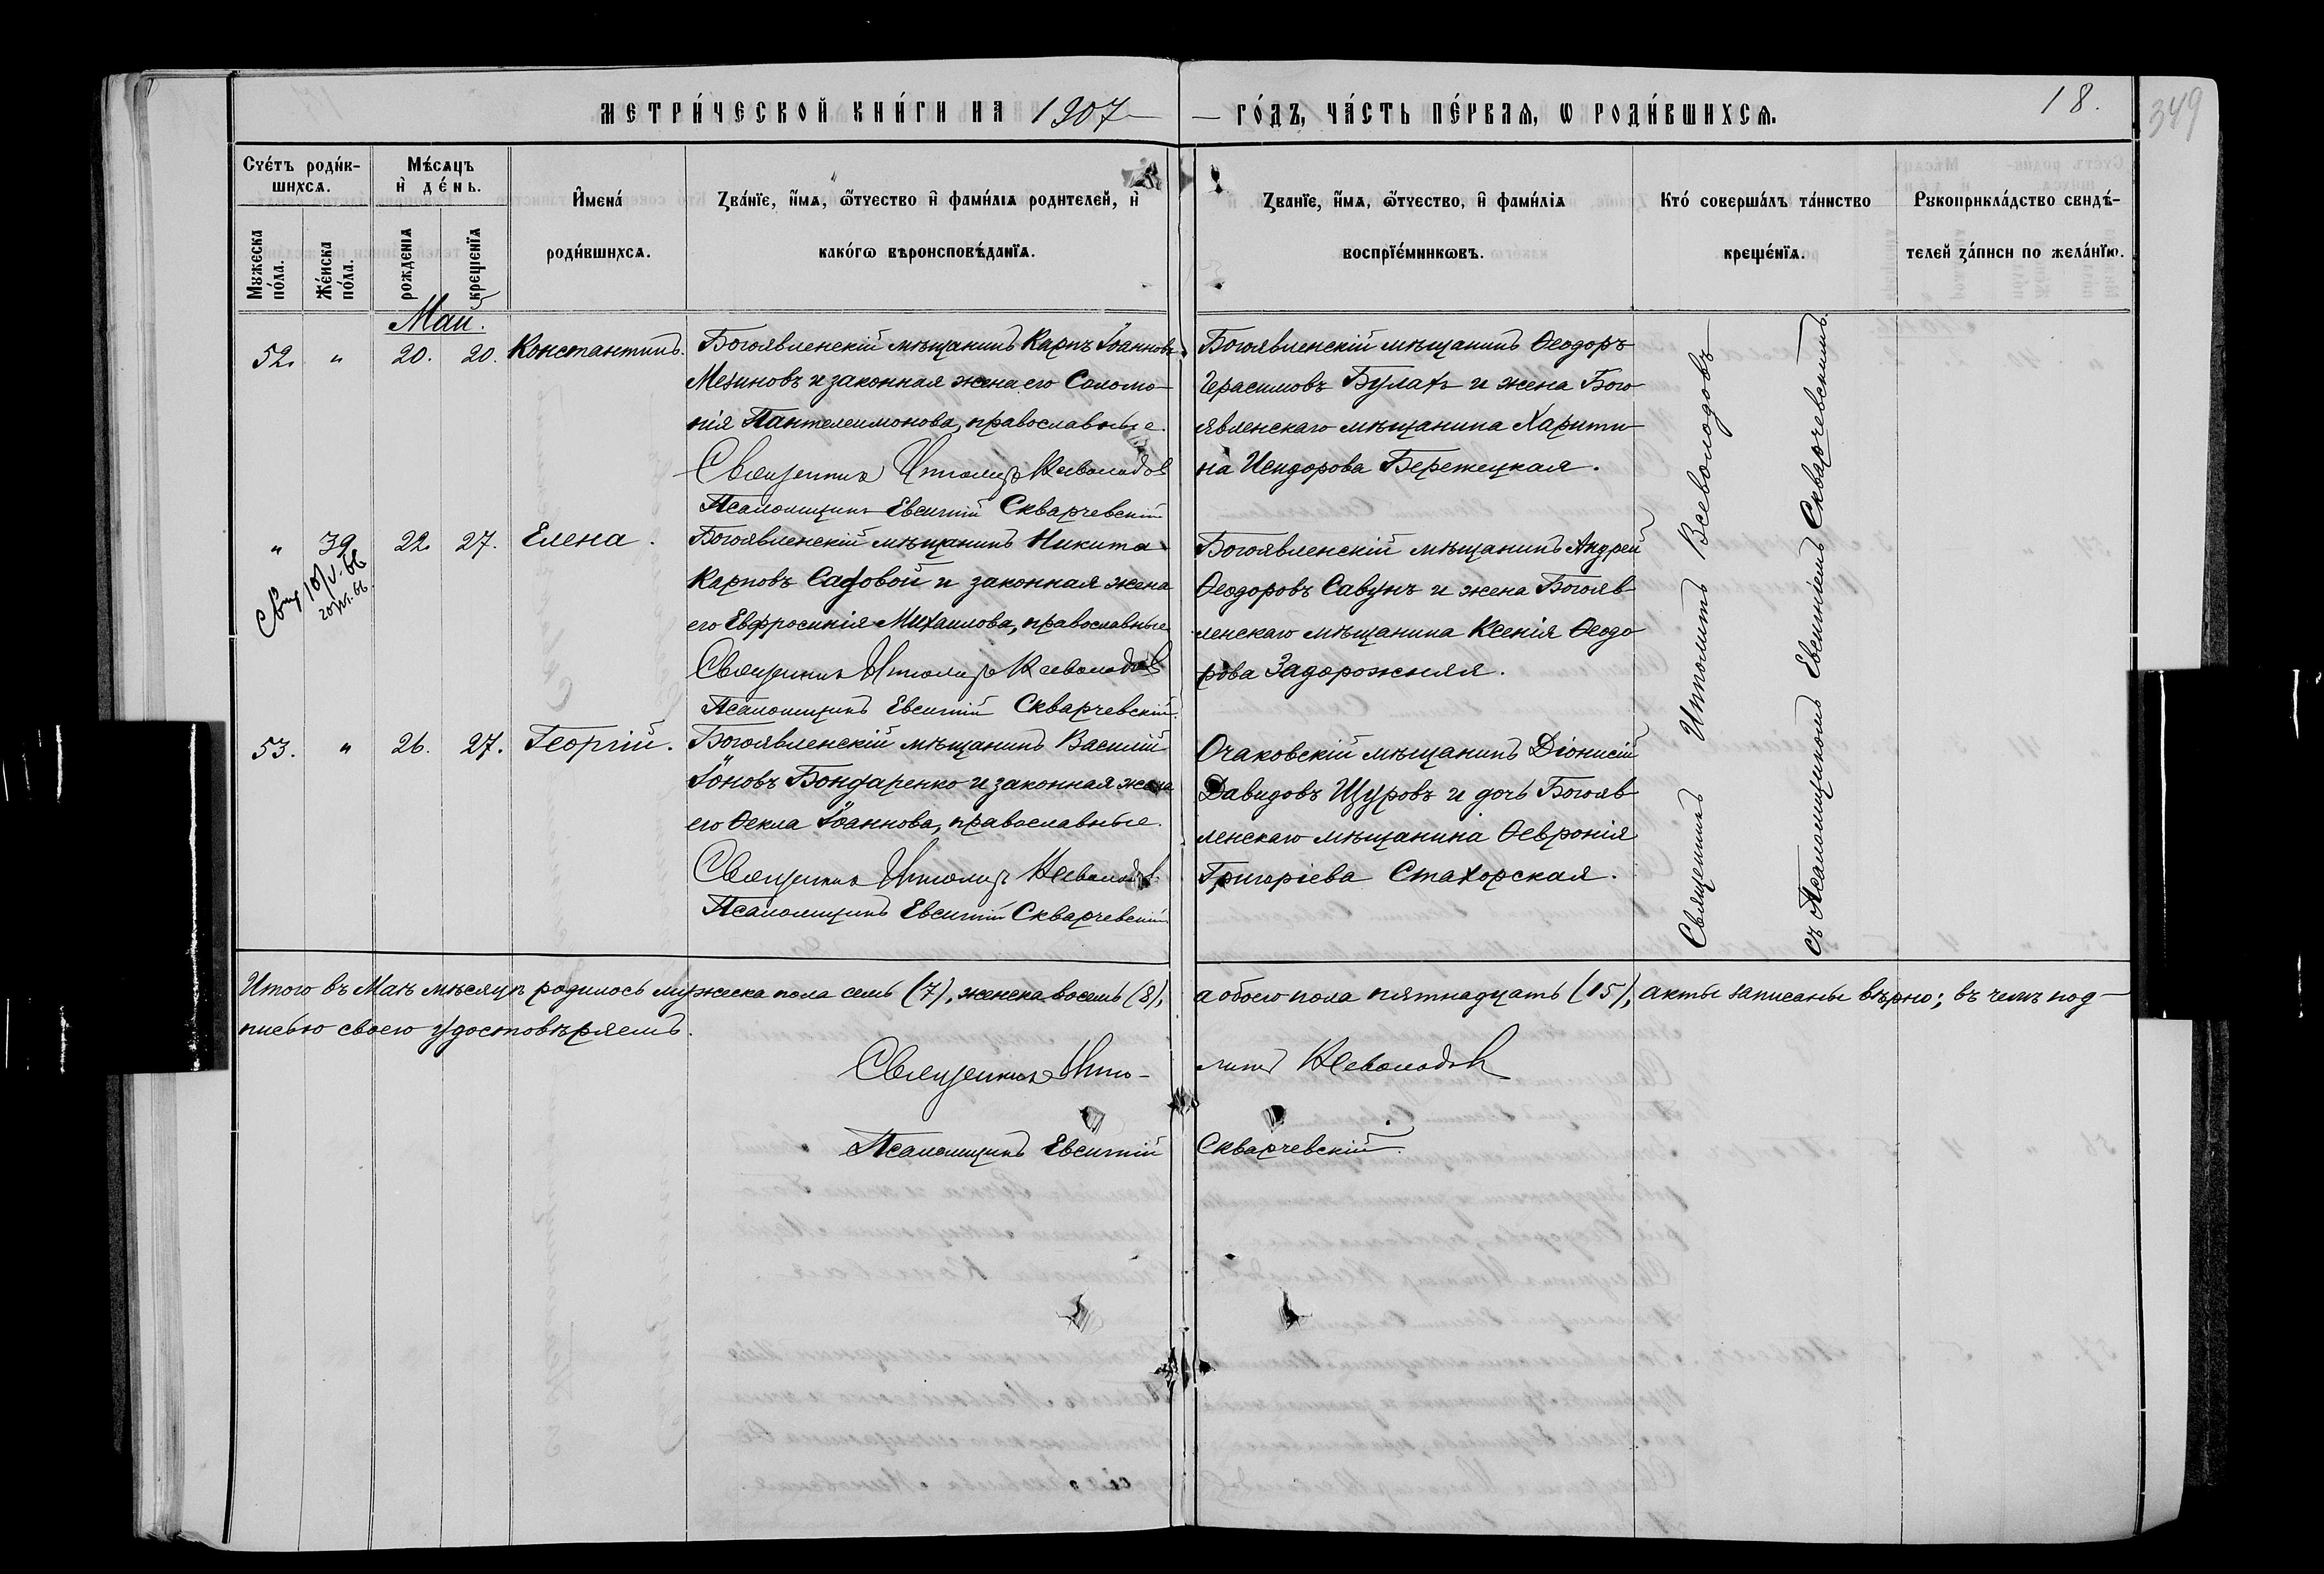 МЕТРИ́ЧЕСКОЙ КНИ́ГИ НА 1907
ГО́ДЪ, ЧА́СТЬ ПЕ́РВАѦ, Ѡ РОДИ́ВШИХСѦ.
18.
349
Счéтъ роди́в-
шихсѧ.
Мꙋжеска
по́ла.
Же́нска
по́ла.
Мѣ́сѧцъ
и҆ де́нь.
рожденїѧ
крещенїѧ
И҆мена́
роди́вшихсѧ.
Зва́нїе, и҆́мѧ, ѻ҆́тчество и҆ фами́лїѧ родителей, и҆
како́гѡ вѣроисповѣ́данїѧ.
Званїе, и҆́мѧ, ѻ҆́тчество, и҆ фами́лїѧ
воспрїе́мникѡвъ.
Кто́ соверша́лъ та́инство
креще́нїѧ.
Рꙋкоприкла́дство свидѣ́-
телей за́писи по жела́нїю.
Май.
52. " 20. 20. Константинъ.
Богоявленскій мѣщанинъ Карпъ Іоанновъ
Мехиновъ и законная жена его Соломо-
нія Пантелеимонова, православные.
Священникъ Ипполитъ Всеволодовъ
Псаломщикъ Евсигній Скварчевскій
Богоявленскій мѣщанинъ Ѳеодоръ
Герасимовъ Булахъ и жена Бого
явленскаго мѣщанина Харити-
на Исидорова Бережецкая.
" 39 22. 27. Елена.
Богоявленскій мѣщанинъ Никита
Карповъ Садовой и законная жена
его Евфросинія Михаилова, православные
Священникъ Ипполитъ Всеволодовъ
Псаломщикъ Евсигній Скварчевскій.
Богоявленскій мѣщанинъ Андрей
Ѳеодоровъ Савунъ и жена Богояв-
ленскаго мѣщанина Ксенія Ѳеодо-
рова Задорожняя.
53. " 26. 27. Георгій.
Богоявленскій мѣщанинъ Василій
Іоновъ Бондаренко и законная жена
его Ѳекла Іоаннова, православные.
Священникъ Ипполитъ Всеволодовъ
Псаломщикъ Евсигній Скварчевскій
Очаковскій мѣщанинъ Діонисій
Давидовъ Щуровъ и дочь Богояв-
ленскаго мѣщанина Ѳевронія
Григоріева Стахорская.
Священникъ Ипполитъ Всеволодовъ
съ Псаломщикомъ Евсигніемъ Скварчевскимъ.
Итого въ Маѣ мѣсяцѣ родилось мужеска пола семь (7), женска восемь (8), а обоего пола пятнадцать (15), акты записаны вѣрно; въ чемъ под-
писью своею удостовѣряемъ.
Священникъ Иппо-
литъ Всеволодовъ
Псаломщикъ Евсигній Скварчевскій.